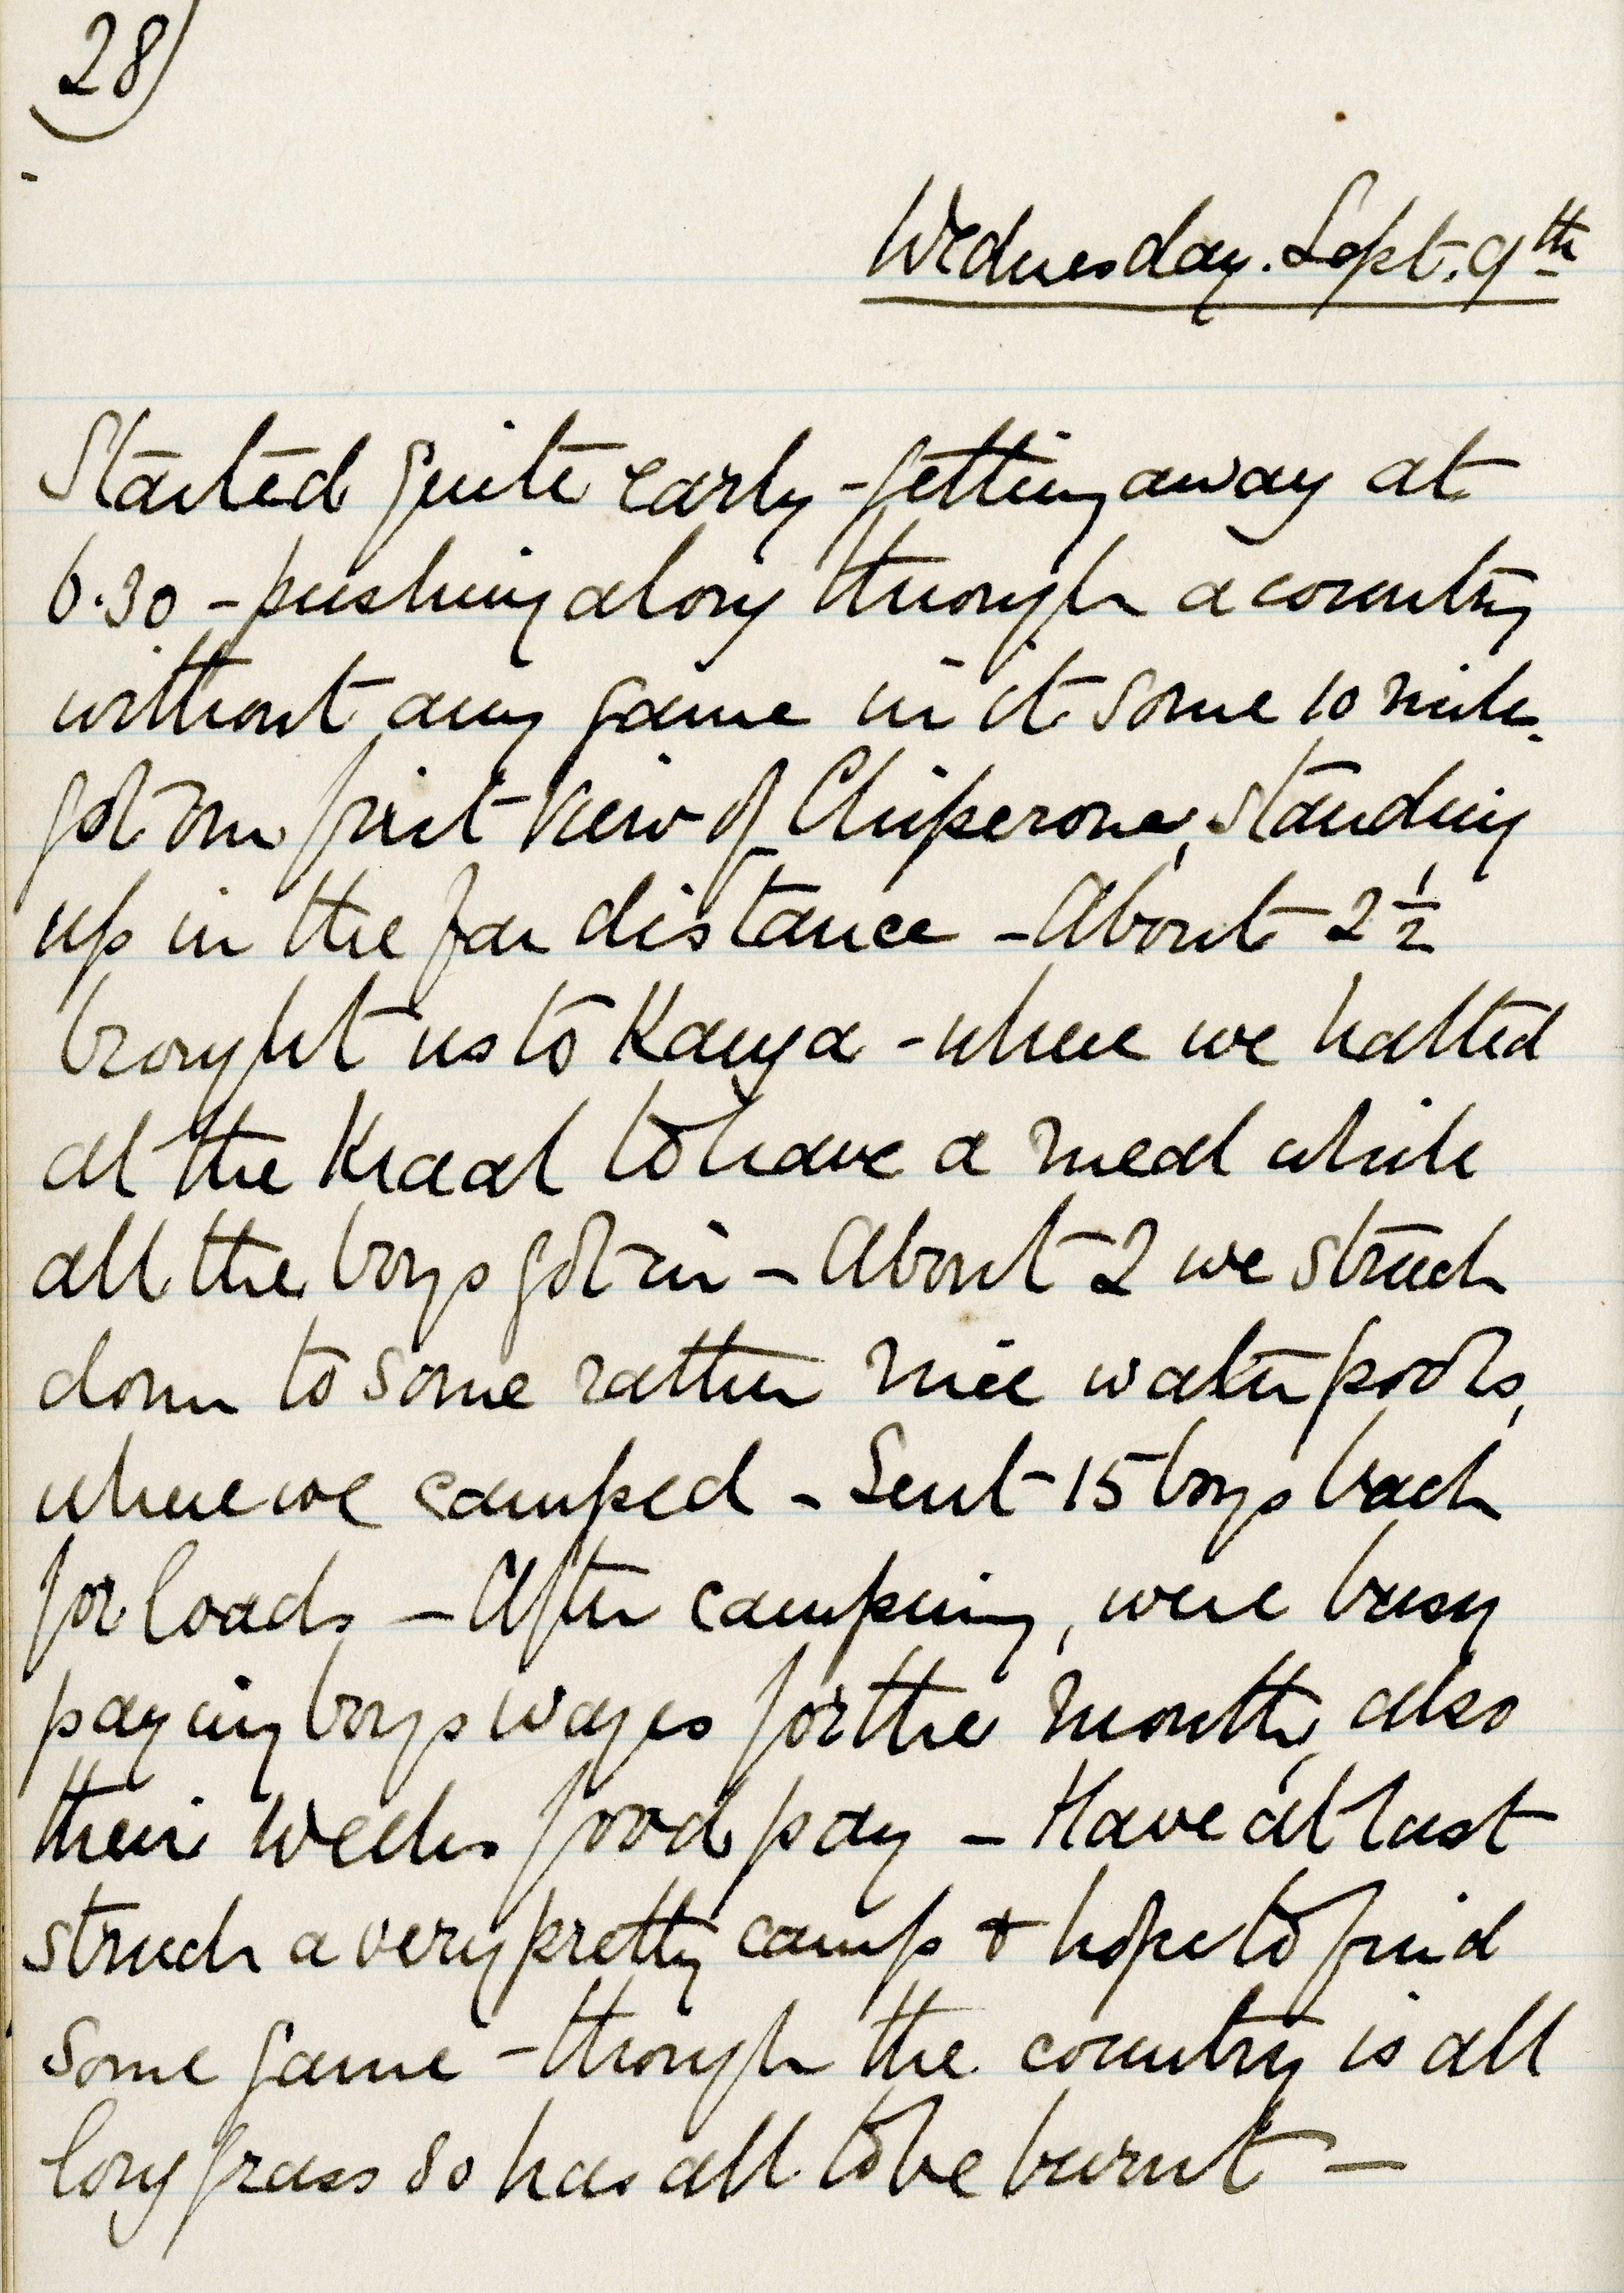 28)
Wednesday. Sept. 9th
Started quite early - getting away at
6.30 - pushing along through a country
without any game in it some 10 miles.
got our first view of Chiperone, standing
up in the far distance - About 2 1/2
brought us to Kanga - where we halted
at the Kraal to have a meal while
all the boys got in - About 2 we struck
down to some rather nice water pools,
where we camped - Sent 15 boys back
for loads - After camping, were busy
paying boys wages for the month, also
their weeks food pay - Have at last
struck a very pretty camp & hope to find
some game - though the country is all
long grass so has all to be burnt -